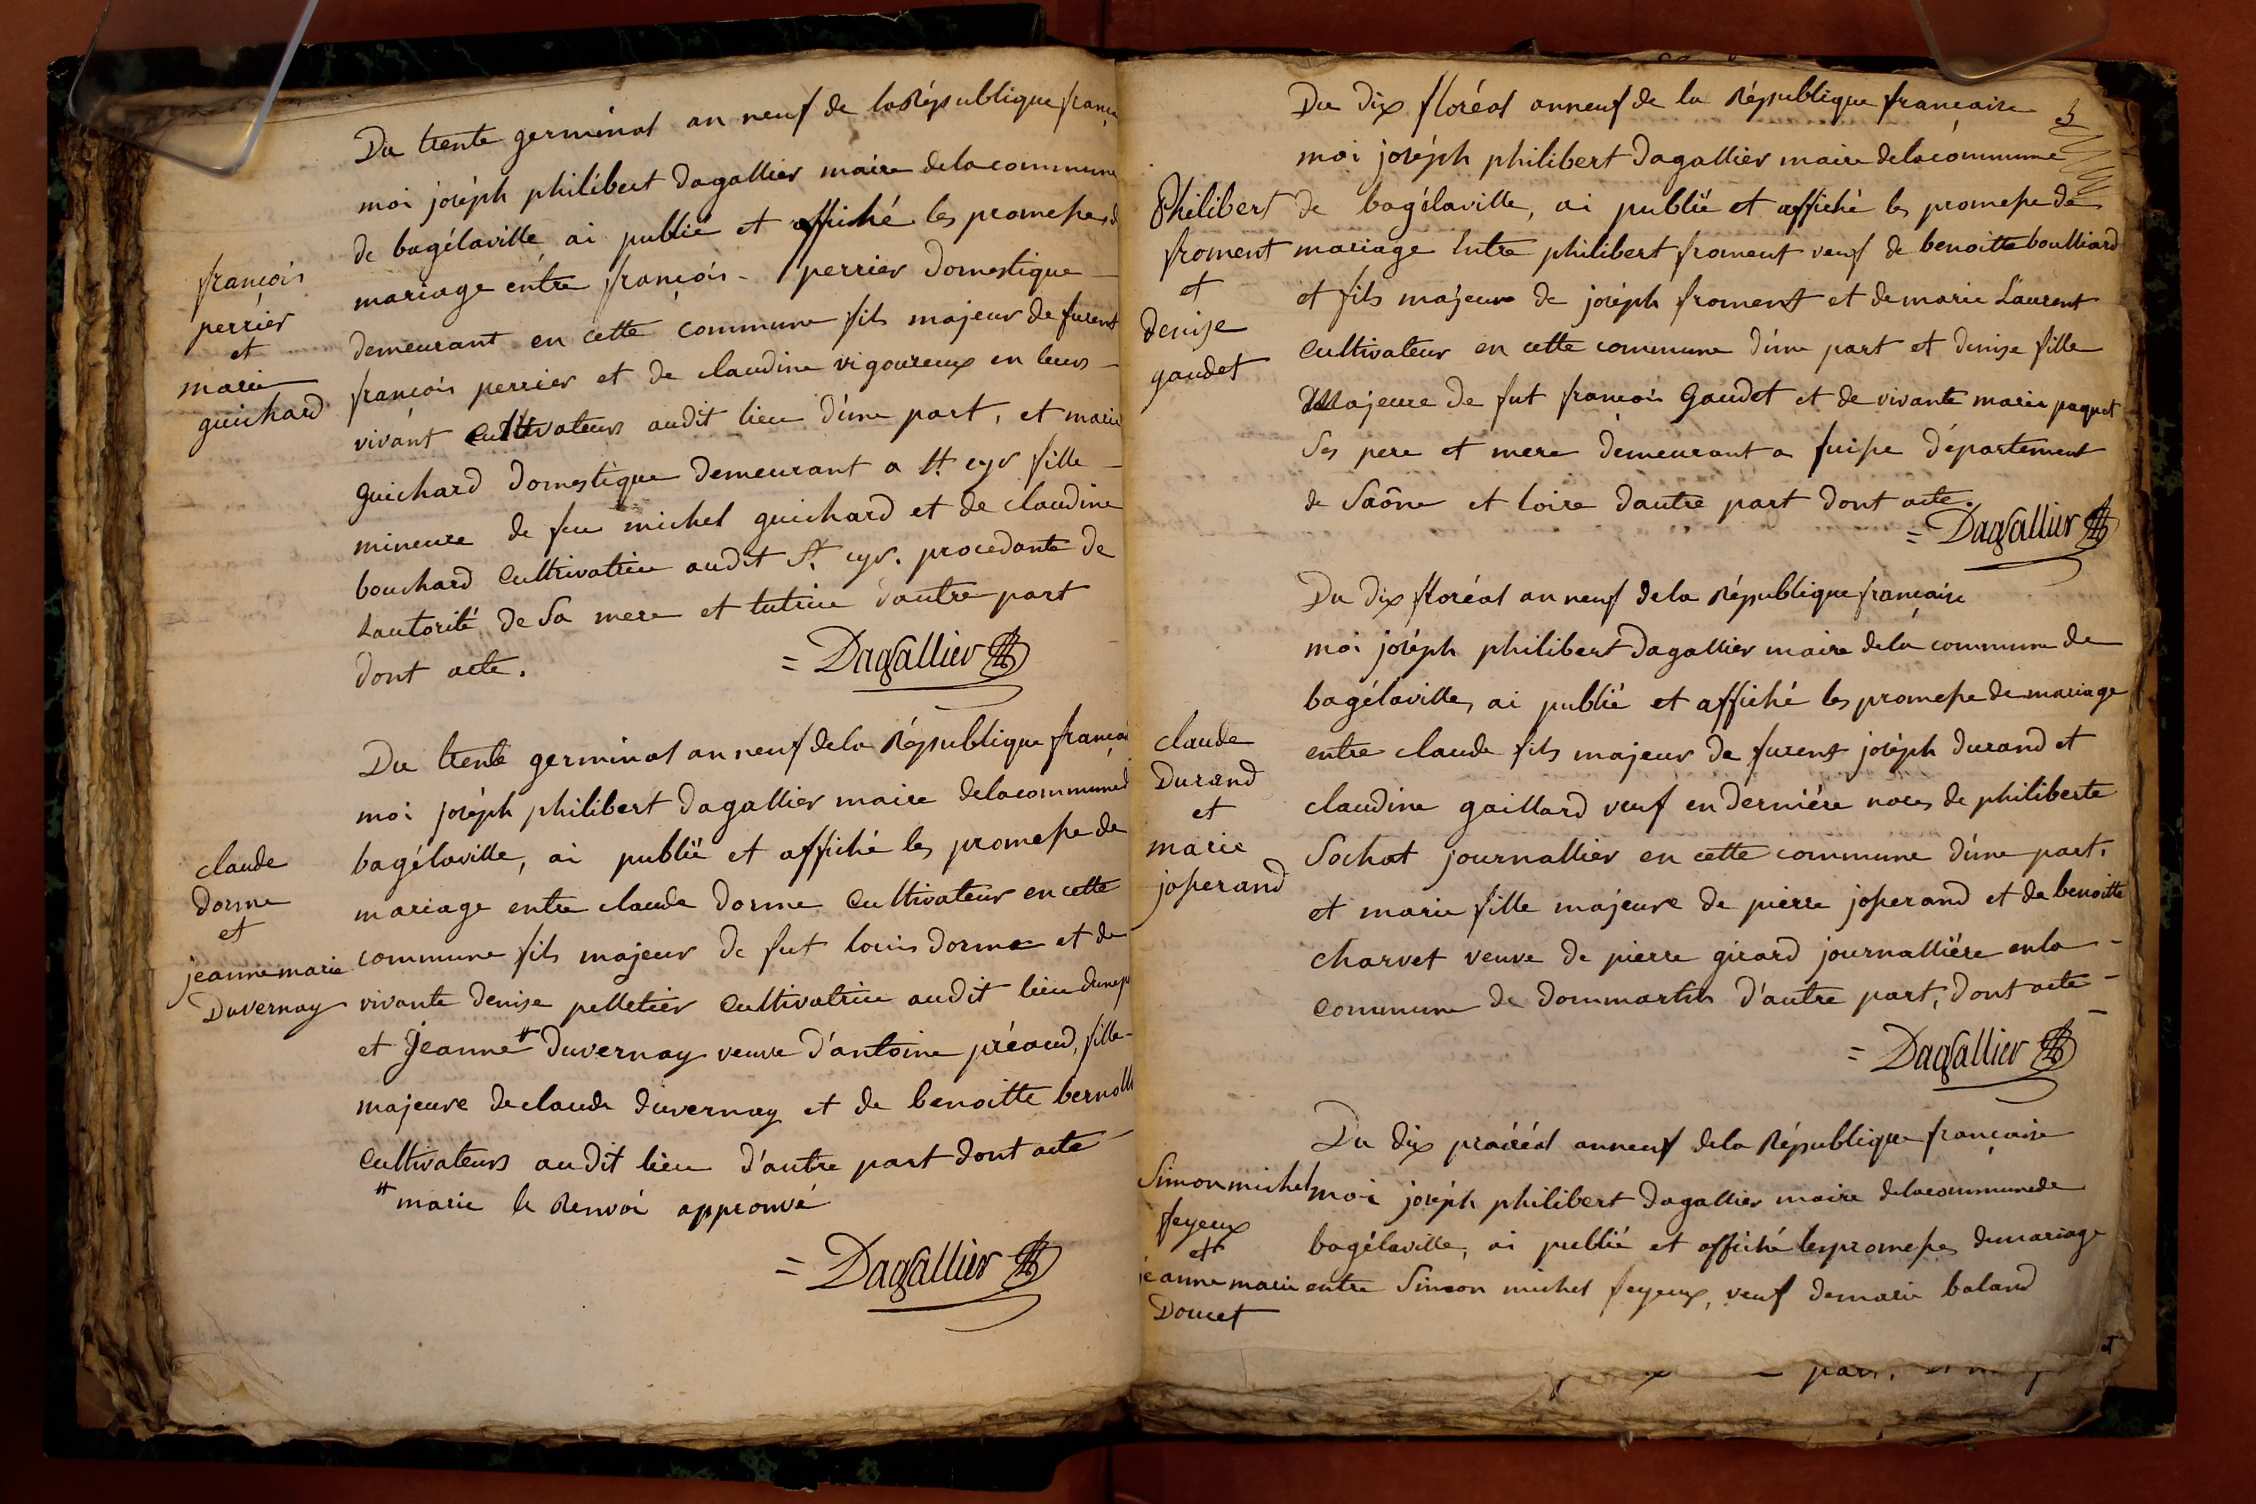 Du trente germinal an neuf de la République frança
moi joséph philibert Dagallier maire delacommune
de bagélaville ai publié et affiché les promesses d
mariage entre françois - perrier Domestique -
françois
perrier
et
marie
guichard
demeurant en cette commune fils majeur de furent
françois perrier et de claudine vigoureux en leurs -
vivant cultivateurs audit lieu d'une part, et marie
guichard Domestique Demeurant a St cyr fille -
mineure de feu michel guichard et de claudine
bouchard Cultivatrice audit St. cyr. procedante de
Lautorité de Sa mere et tutrice d'autre part
dont acte.
= Dagallier
Du trente germinal an neuf dela République françai
moi joséph philibert Dagallier maire delacommune d
bagélaville, ai publié et affiché les promesse de
mariage entre claude Dorme Cultivateur en cette
claude
Dorme
et
jeanne marie
Duvernay
commune fils majeur de fut louis dorme et de
vivante denise pelletier Cultivatrice audit lieu dunep
et Jeanne # Duvernay veuve d'antoine préaud, fille -
majeure declaude duvernay et de benoitte bernoll
Cultivateurs audit lieu d'autre part dont acte -
# marie le Renvoi approuvé
= Dagallier
3
Du Dix floréal anneuf de la République francaise
moi joséph philibert Dagallier maire delacommune
de bagélaville, ai publié et affiché les promesse de
mariage Entre philibert froment veuf de benoitte boulliard
Philibert
froment
et
denise
gaudet
et fils majeur de joséph froment et demarie Laurent
Cultivateur en cette commune d'une part et denise fille
Majeure de fut francois Gaudet et de vivante marie paquet
Ses pere et mere demeurant a fuisse département
de Saône et loire dautre part dont acte.
= Dagallier
Du Dix floréal an neuf dela République française
moi joséph philibert Dagallier maire dela commune de
bagélaville, ai publié et affiché les promesse de mariage
entre claude fils majeur de furent joséph durand et
claude
Durand
et
marie
josserand
claudine gaillard veuf en derniére noces de philiberte
Sochat journallier en cette commune d'une part.
et marie fille majeure de pierre josserand et de benoitte
charvet veuve de pierre girard journalliére en la -
commune de dommartin d'autre part, dont acte -
= Dagallier
Du dix prairéal anneuf dela République francaise
moi joséph philibert Dagallier maire delacommunede
bagélaville, ai publié et affiché lespromesses demariage
entre Simeon michel feyeux, veuf demarie baland
Simon michel
feyeux
et
jeanne marie
Doucet
et
part, et